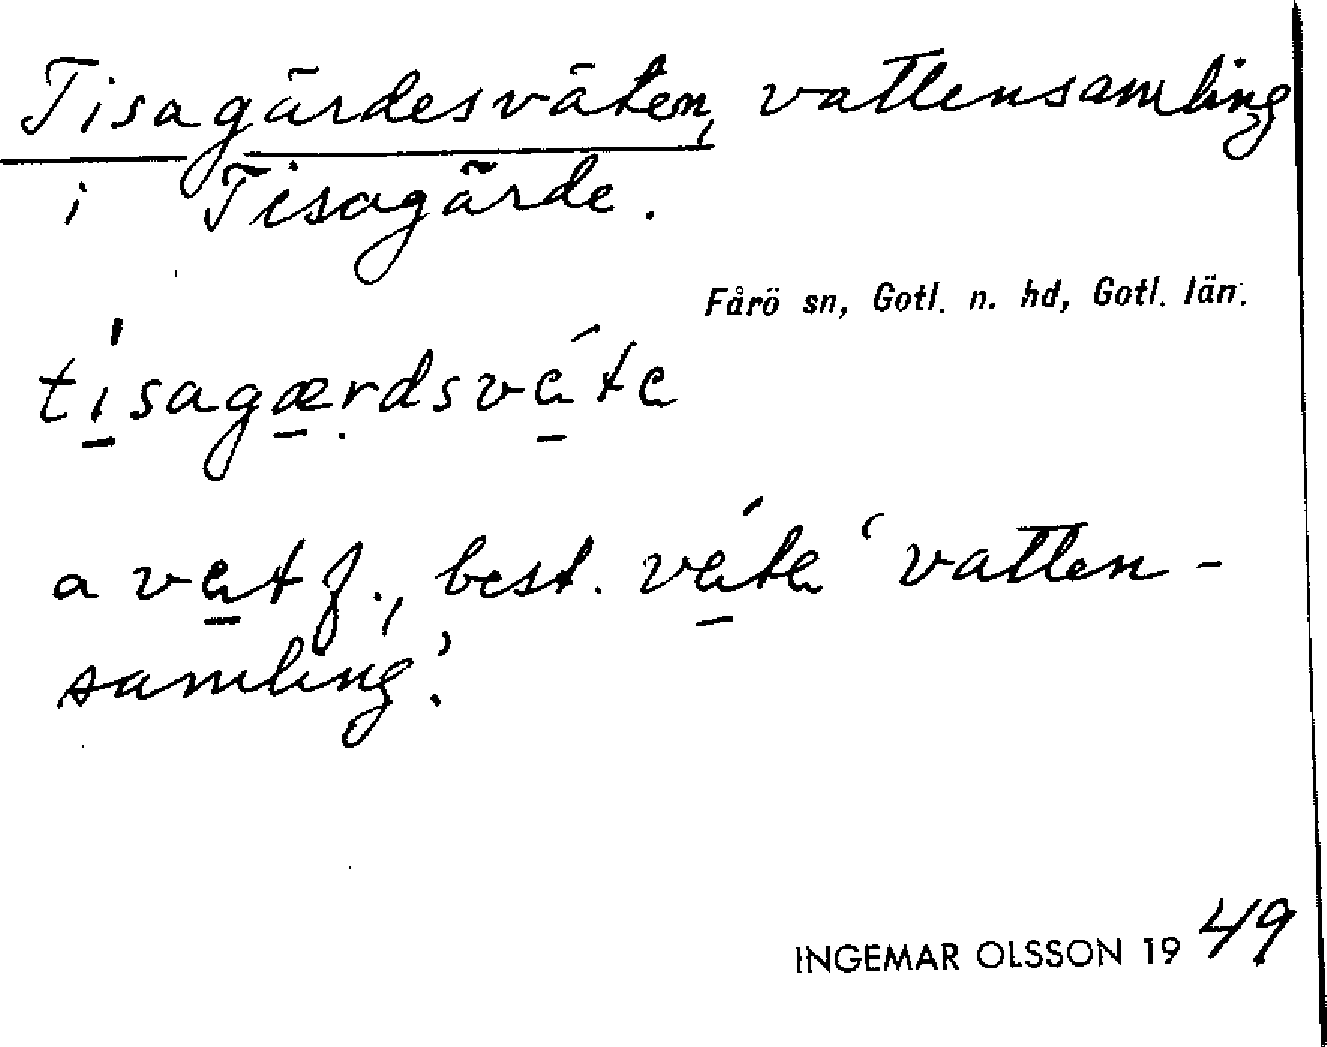 Tisagärdesväten, vattensamling
i Tisagärde.
Fårö sn, Gotl. n. hd, Gotl. län.
tisagærdsvéte
a vet f., best. véte ‘vatten-
samling’.
INGEMAR OLSSON 1949